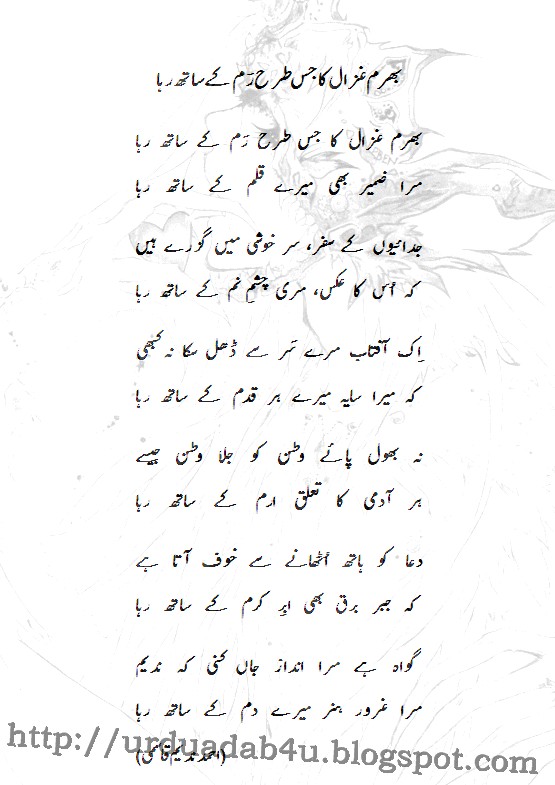 بھرم غزال کا جس طرح رَم کے ساتھ رہا
بھرم غزال کا جس طرح رَم کے ساتھ رہا
مرا ضمیر بھی میرے قلم کے ساتھ رہا
جدائیوں کے سفر، سر خوشی میں گزرے ہیں
کہ اُس کا عکس، مری چشمِ نم کے ساتھ رہا
اِک آفتاب مرے سَر سے ڈھل سکا نہ کبھی
کہ میرا سایہ میرے ہر قدم کے ساتھ رہا
نہ بھول پائے وطن کو جلا وطن جیسے
ہر آدمی کا تعلق ارم کے ساتھ رہا
دعا کو ہاتھ اُٹھانے سے خوف آتا ہے
کہ جبر برق بھی ابرِ کرم کے ساتھ رہا
گواہ ہے مرا اندازِ جاں کنی کہ ندیم
مرا غرور ہنر میرے دم کے ساتھ رہا
(احمد ندیم قاسمی)
http://urduadab4u.blogspot.com